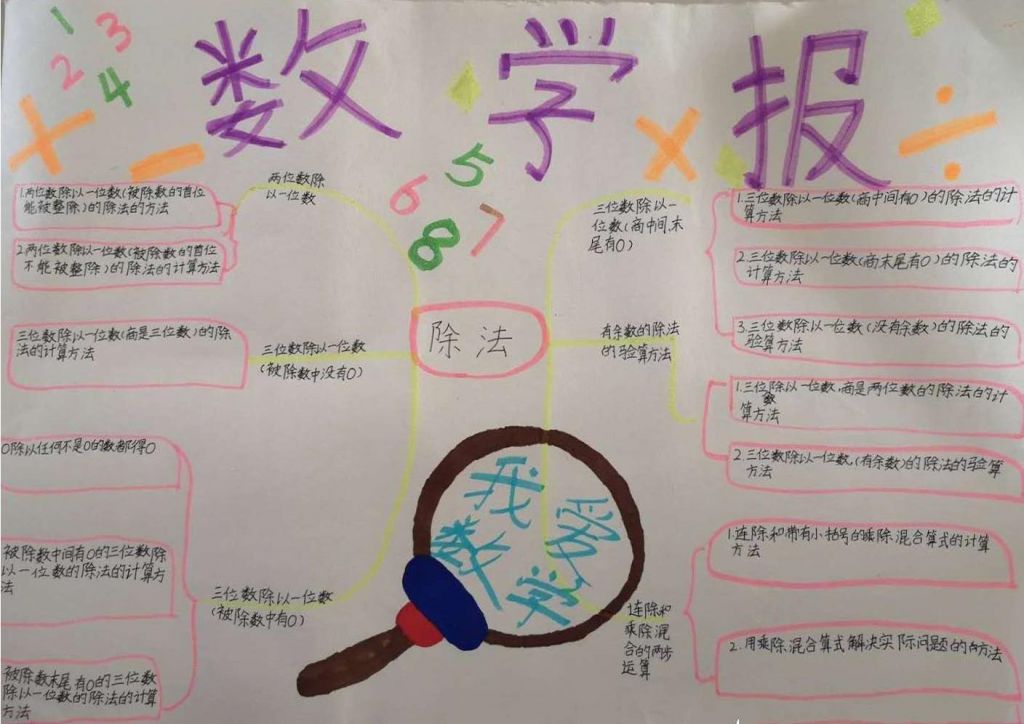 数学报
1
2
3
4
+
-
×
÷
5
6
7
8
除法
两位数除
以一位数
1.两位数除以一位数(被除数的首位
能被整除)的除法的方法
2.两位数除以一位数(被除数的首位
不能被整除)的除法的计算方法
三位数除以一位数
(被除数中没有0)
三位数除以一位数(商是三位数)的除
法的计算方法
三位数除以一位数
(被除数中有0)
0除以任何不是0的数都得0
被除数中间有0的三位数除
以一位数的除法的计算方
法
被除数末尾有0的三位数
除以一位数的除法的计算
方法
三位数除以一
位数(商中间、末
尾有0)
1.三位数除以一位数(商中间有0)的除法的计
算方法
2.三位数除以一位数(商末尾有0)的除法的
计算方法
3.三位数除以一位数(没有余数)的除法的
验算方法
有余数的除法
的验算方法
1.三位数除以一位数,商是两位数的除法的计
算方法
2.三位数除以一位数,(有余数)的除法的验算
方法
连除和
乘除混
合的两步
运算
1.连除和带有小括号的乘除混合算式的计算
方法
2.用乘除混合算式解决实际问题的方法
我爱
数学